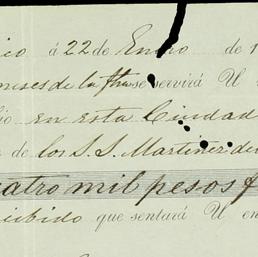 ico á 22 de Enero de 1
meses de la fha se servirá U
io en esta Ciudad
de los S. S. Martinez del
uatro mil pesos
ecibido que sentará U en